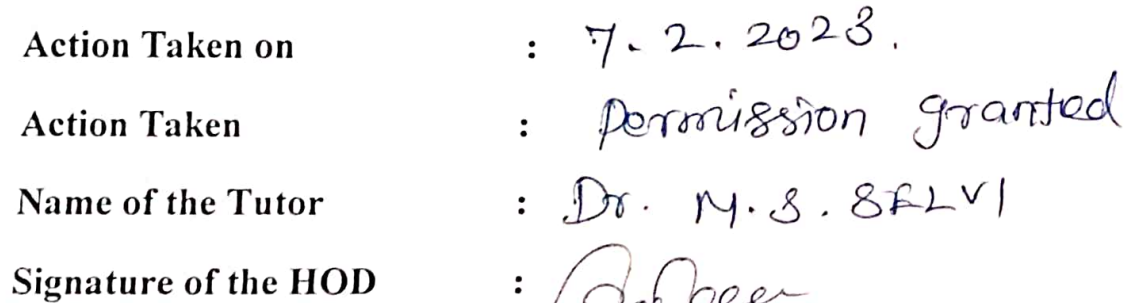 Action Taken on : 7.2.2023.
Action Taken : Permission granted
Name of the Tutor : Dr. M.S. SELVI
Signature of the HOD :